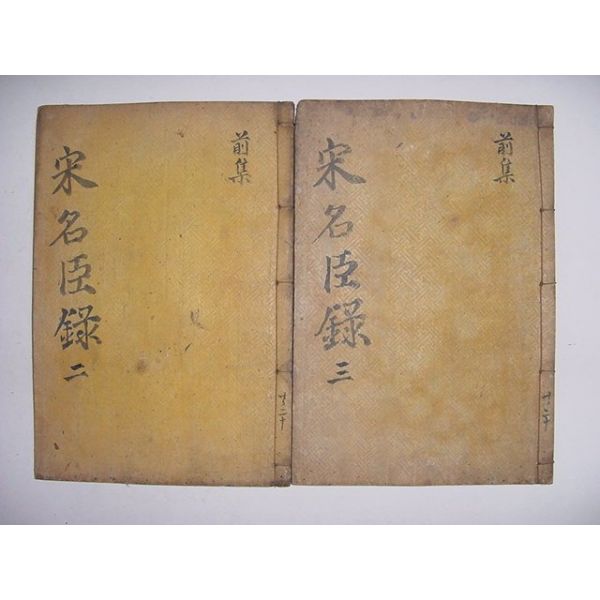 前集
宋名臣錄 三
前集
宋名臣錄 二